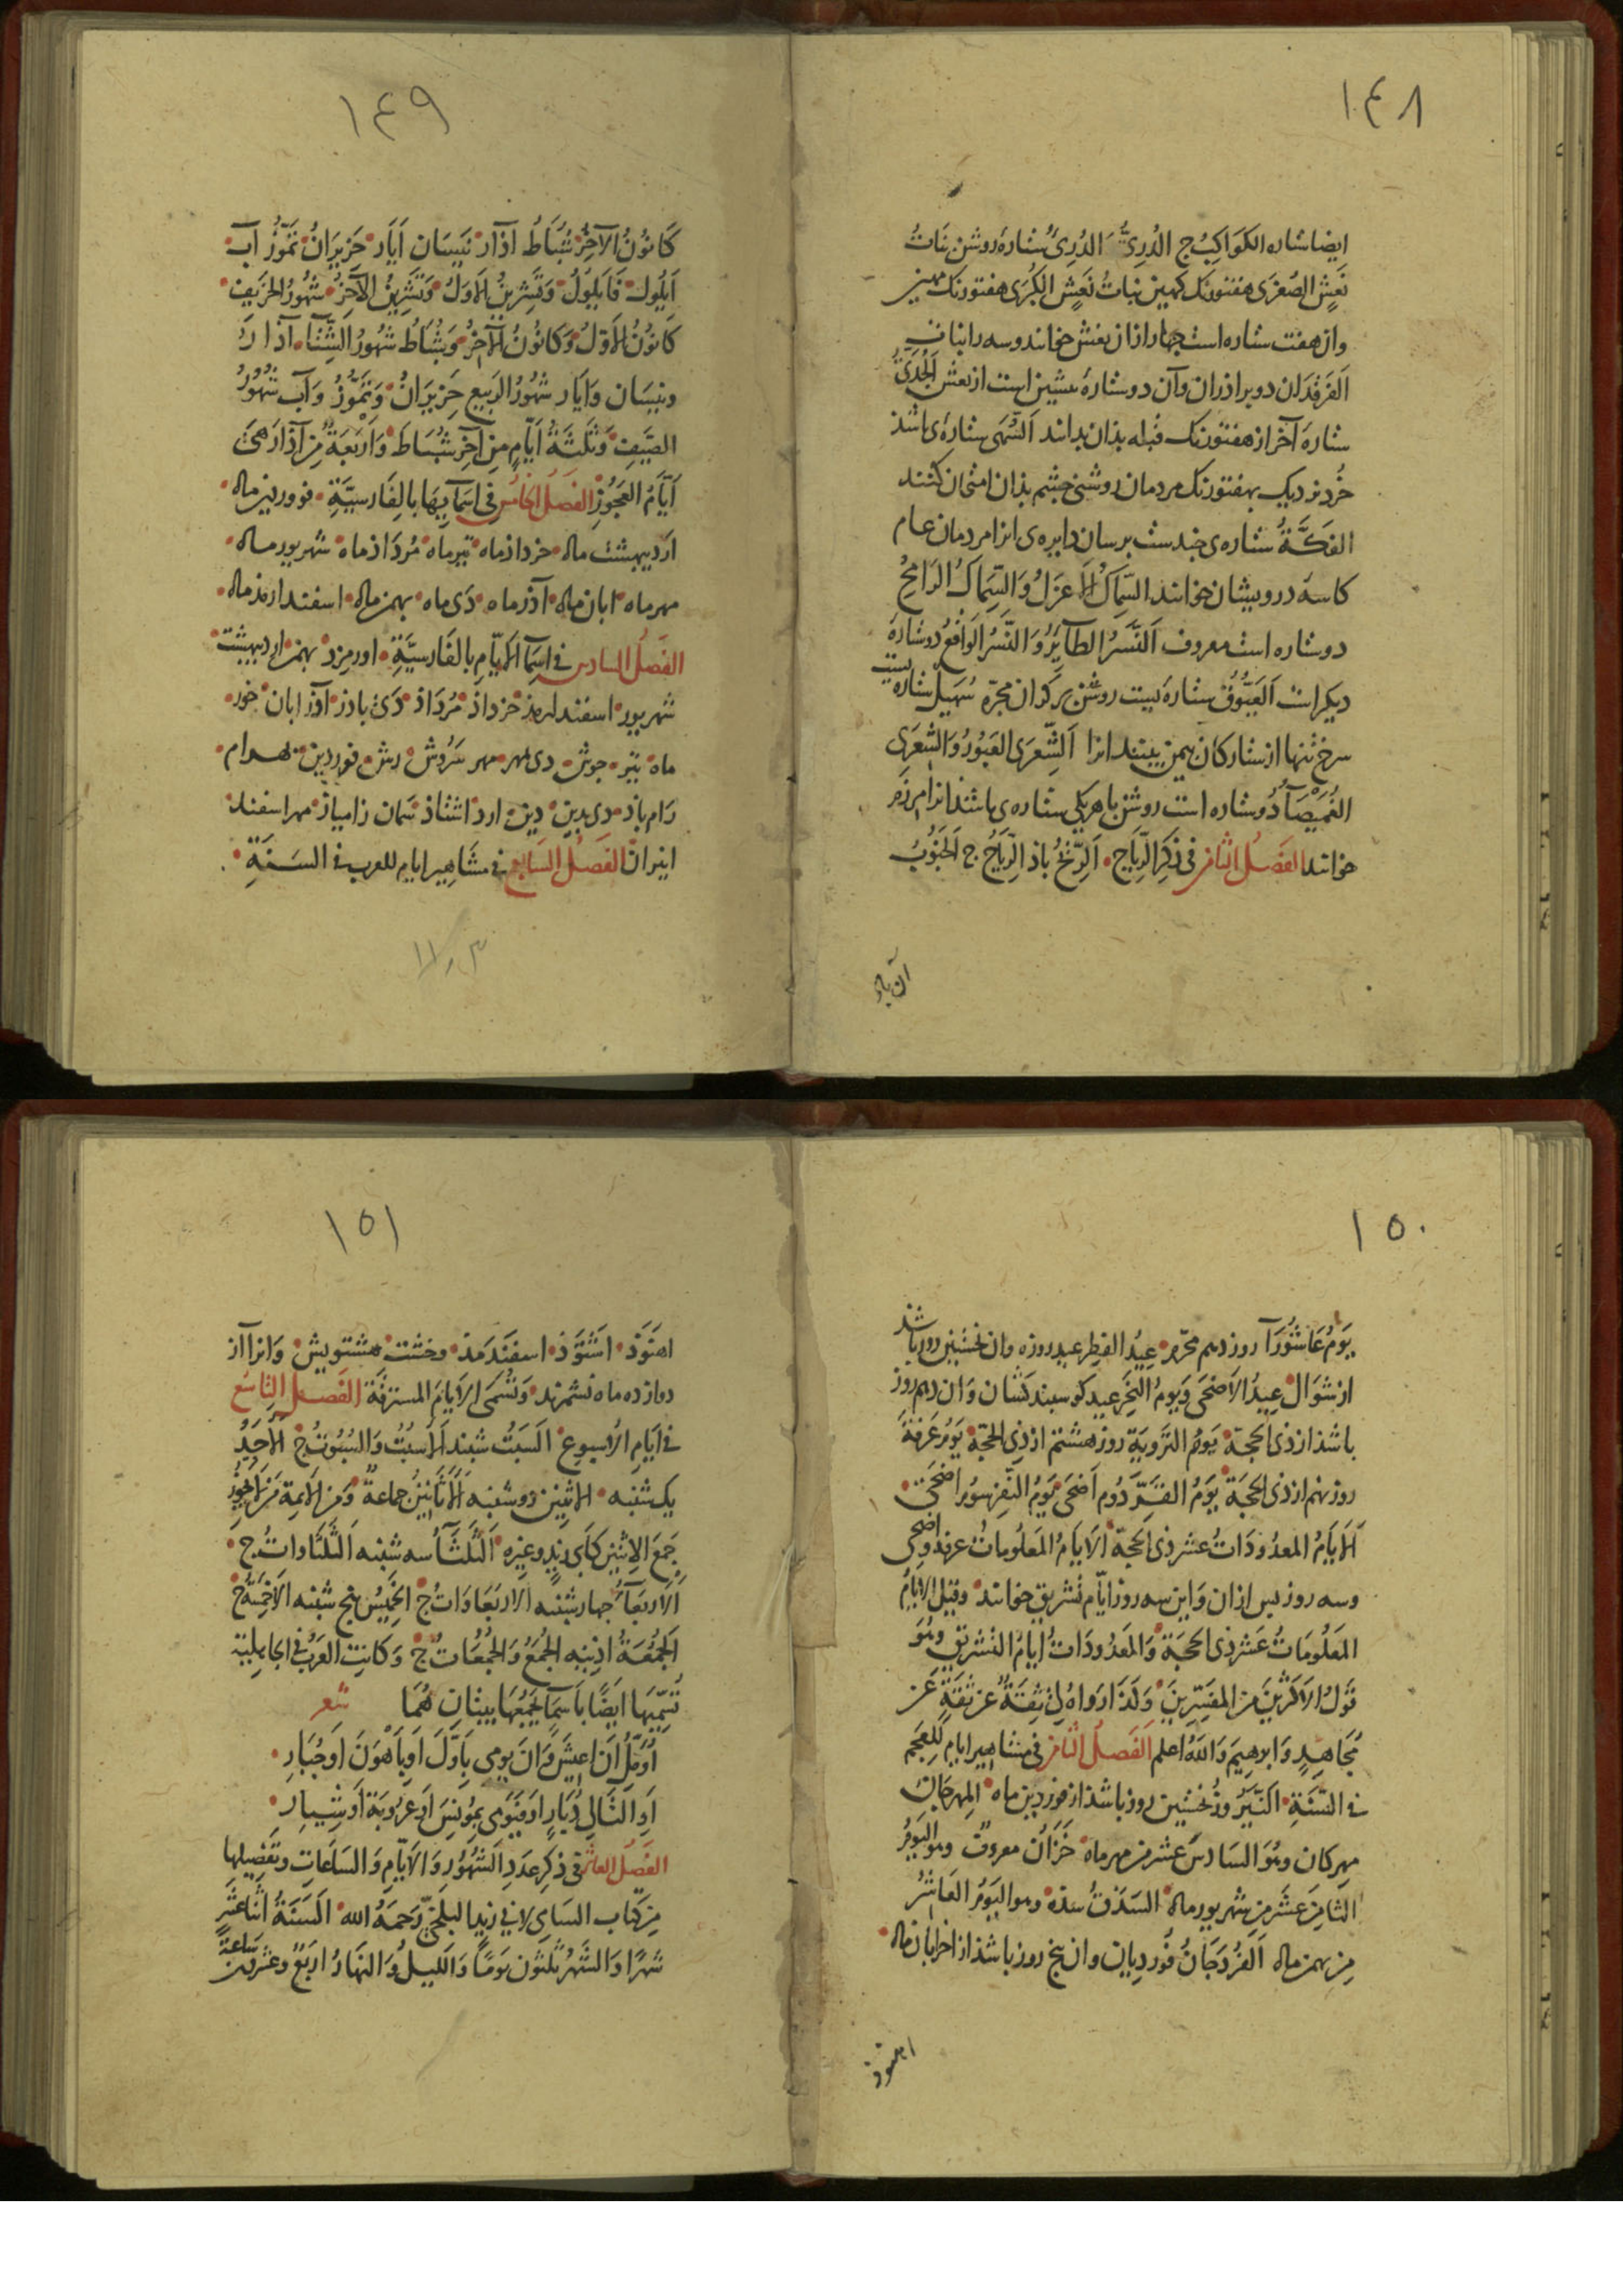 ١٤٨
ایضا ستاره الکَوَاکِبُ ج الدُرِیُّ الدُرِیُ ستارهٔ روشن بَنَاتُ
نَعْشِ الصُغرَی هفتورنک کهین بناتُ نَعْشِ الکُبرَی هفتورنک مهین
وان هفت ستاره است چهار ازان نعش خوانند وسه را بنات
الفَرقَدَان دو برادران وآن دو ستارهٔ پیشین است از نعش الجُدَیُ
ستارهٔ آخر از هفتورنک قبله بذان بدانند السُهَی ستارهٔ باشذ
خُرد نزدیک بهفتورنک مردمان روشنی چشم بذان امتحان کنند
الفَکَّةُ ستاره‌ی چندست برسان دایره‌ی انرا مردمان عام
کاسهٔ درویشان خوانند السِّمَاکُ الاَعزَلُ وَالسِّمَاکُ الرَامِحُ
دو ستاره است معروف اَلنَّسرُ الطَآیِرُ وَ النَّسرُ الوَاقِعُ دو ستارهٔ
دیکر است العَیُّوقُ ستارهٔ یست روشن بر کران مجرّه سُهَیل ستاره یست
سرخ تنها از ستارکان بیمن بینند انرا اَلشِّعرَی العَبُورُ وَالشِعرَی
الغُمَیصَآءُ دو ستاره است روشن باهریکی ستاره‌ی باشد انرا مرزَم
خوانند الفصل الثامن فی ذِکرِ الرِّیَاحِ الرِّیحُ باذ الرِّیَاحُ ج الجَنُوبُ
آن باد
١٤٩
کَانُونُ الآخِرُ شُبَاطُ آذَار نَیسَان اَیَار حَزِیرَانُ تَمُوزُ آب
اَیلُول فَاَیلُولُ وَتَشرِینُ الاَولُ وَتَشرِینُ الآخِرُ شُهُورُ الخَرِیفِ
کَانُونُ الاَوَّلُ وَکَانُونُ الآخِرُ وَشُبَاطُ شُهُورُ الشِتَآءِ آذارُ
ونیسَان وَاَیَار شُهُورُ الرَبِیعِ حَزِیرَانُ وَتَمُّوزُ وَآب شُهُورُ
الصَیفِ وَثَلٰثَةُ اَیَّامٍ مِن آخِرِ شُبَاطَ وَاَربَعَةٌ مِن آذَارَ هِیَ
اَیَّامُ العَجُوزِ الفَصلُ الخامُس فی اسمَآیِهَا بِالفَارسِیَّةِ فروردین ماه
اردیبهشت ماه خرداذ ماه تیرماه مُردَاذ ماه شهریور ماه
مهرماه ابان ماه آذر ماه دَی ماه بهمن ماه اسفندارمذ ماه
الفَصلُ السادس فی اسمآءِ الاَیّامِ بالفَارسِیَّةِ اورمزد بهمن اردیبهشت
شهریور اسفندارمذ خرداذ مُردَاذ دَیْ باذر آذر ابان خور
ماه تیر جوش دی مهر مهر سَرُوش رش فروردین بهرام
رَام باذ دی بدین دین ارد اشتاذ سَمان زامیاذ مهراسفند
انیران الفَصلُ السَابع فی مشَاهیر ایام للعرب فی السَنَةِ
١٥٠
یَومُ عَاشُورَآ روز دهم محرّم عِیدُ الفِطرِ عید روزه وان نخستین روز باشذ
از شوّال عِیدُ الاَضحَی وَیَومُ النَحرِ عید کوسبندکشان وَان دهم روز
باشذ از ذی الحجّة یَومُ التَروِیَةِ روز هشتم از ذِی الحجّة یَومُ عَرَفَةَ
روز نهم از ذی الحجّة یَومُ القَرِّ دوم اَضحَی یَومُ النَفرِ سوم اضحَی
اَلاَیَامُ المَعدُودَاتُ عشر ذی الحجّة الاَیَامُ المَعلُومَاتُ عرفه واضحی
وسه روز بس از ان وَاین سه روز ایّام تشریق خوانند وقیل الاَیَامُ
المَعلُومَاتُ عَشر ذی الحجّة وَالمَعدُودَاتُ اَیَامُ التشریق وَهُوَ
قَولُ الاَکثَرِینَ مِنَ المُفَسِّرِینَ وَکَذَا رَوَاهُ لِی ثِقَةٌ عَن ثِقَةٍ عَن
مُجَاهِدٍ وَابرهِیمَ وَاللّٰهُ اعلم الفَصلُ الثامن فی مشاهیر ایام لِلعَجَم
فی السَّنَةِ النَیرُوزُ نخستین روز باشذ از فروردین ماه المِهرجان
مهرکان وهُوَ السَادسَ عَشَر من مهرماه خَزَان معروفٌ وهو الیَومُ
الثامِنَ عَشَر مِن شهریور ماه السَذَقُ سذه وهو الیَومُ العَاشِرُ
مِن بهمن ماه اَلفُروَدجَانُ فَوردیان وان پنج روز باشذ از اخر ابان ماه
اهنوذ
١٥١
اهنَوَذ اَشتَوَذ اسفَندمَذ وخشت هشتویش وَانرا از
دوازده ماه نشمرند وَتُسَمَّی الاَیَامَ المسترقَةَ الفَصلُ التاسَع
فی اَیَامِ الاُسبوع السَبتُ شنبد الاَسبُتُ وَالسُبُوتُ ج الاَحَدُ
یک شنبه الاثنین دوشنبه الاَثَانینُ جماعةٌ وَمن الاَئمة مَن لاَیُجَوِّزُ
جَمعَ الاِثنین کَاَبی زیدٍ وغیرِه الثَلٰثَآءُ سه شنبه الثَّلٰثَاوات ج
اَلاَربَعَآءُ چهارشنبه الاربَعَاوَاتُ ج الخَمِیسُ پنج شنبه الاَخمِسَةُ ج
الجُمُعَةُ اذینه الجُمَعُ وَالجُمُعَاتُ ج وَکَانَتِ العَرَبُ فی الجاهلیة
تُسَمِّیهَا اَیضًا بِاَسمَآءٍ یَجمَعُهَا بیتان هُمَا شعر
اُؤَمِّلُ اَن اَعِیشَ وَاَنَّ یومی بِاَوَّلَ اَو بِاَهوَنَ اَو جُبَارِ
اَوِ التَالِی دُبَارٍ اَو فَیَومی بِمُونِسَ اَو عَرُوبَةَ اَو شِیَارِ
الفَصلُ العاشر فی ذکرِ عَدَدِ الشُهُورِ وَالاَیَّامِ وَالسَاعَاتِ وتَفصِیلِها
مِن کتاب السَامی لابی زیدٍ البلخیّ رَحِمَهُ الله السَنَةُ اثنا عَشَر
شهرًا وَالشَهرُ ثلٰثون یَومًا وَاللَیلُ وَالنهَارُ اربَعٌ وعشرون ساعةً